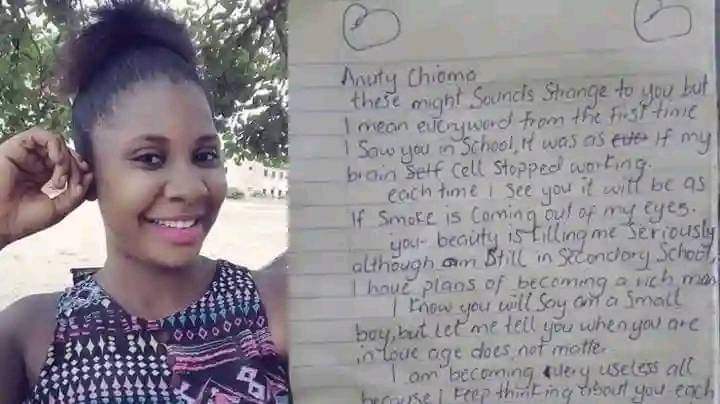 Anuty Chioma
these might Sounds Strange to you but
I mean everyword from the first time
I Saw you in School, it was as if my
brain Self Cell Stopped working.
each time I See you it will be as
If Smoke is Coming out of my eyes.
you- beauty is killing me Seriously
although am Still in Secondary School,
I have plans of becoming a rich man
I know you will Say am a Small
boy, but let me tell you when you are
in love age does not matte.
I am becoming very useless all
because I keep thinking about you each